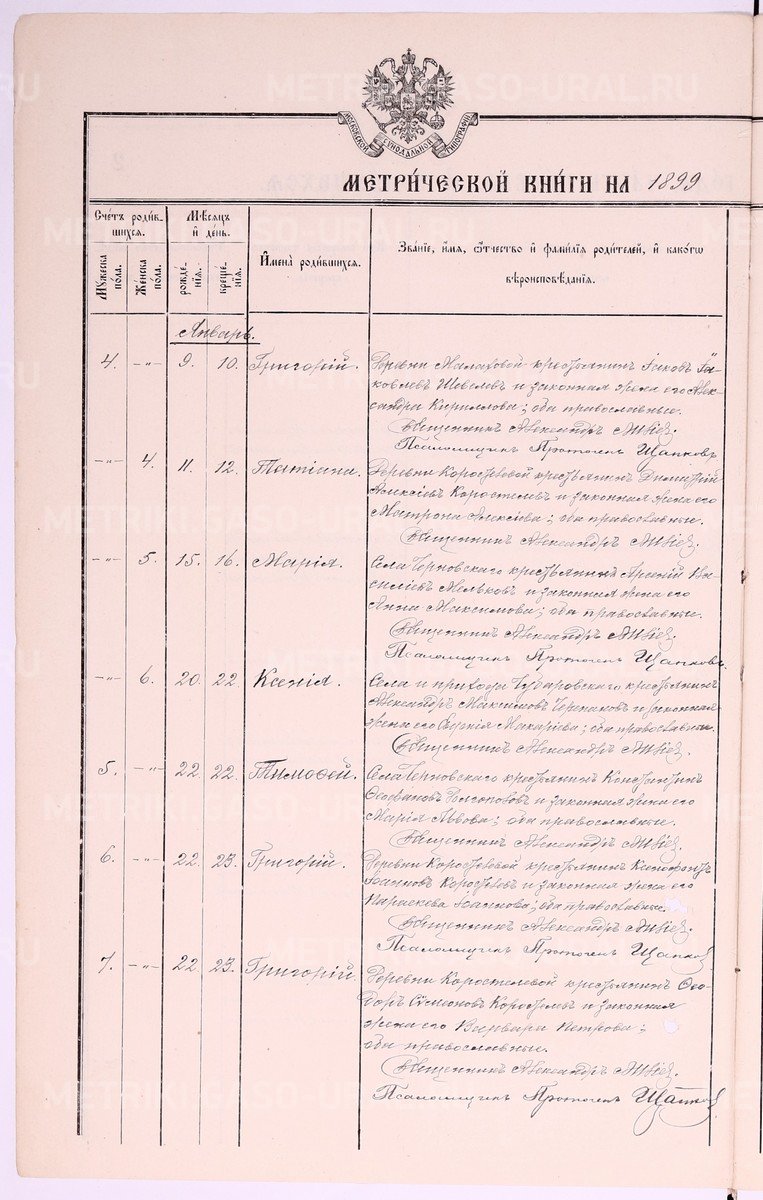 МОСКОВСКОЙ СѴНОДАЛЬНОЙ ТИПОГРАФІИ
МЕТРИ́ЧЕСКОЙ КНИ́ГИ НА 1899
Счетъ роди́в-
шихся.
Мѣсяцъ
и҆ де́нь.
И҆мена̀ роди́вшихся.
Зва́нїе, и҆́мя, ѻ҆́тчество и҆ фами́лїя роди́телей, и҆ како́гѡ
вѣроисповѣ́данїя.
Мꙋжеска по́ла.
Же́нска по́ла.
рожде́нїя.
креще́нїя.
Январь.
4. -"- 9. 10. Григорій. Деревни Малаховой крестьянинъ Іаковъ Іа-
ковлевъ Шевелевъ и законная жена его Алек-
сандра Кириллова; оба православные.
Священникъ Александръ
Псаломщикъ Щапковъ
-"- 4. 11. 12. Татіана. Деревни Коростелевой крестьянинъ Димитрій
Алексіевъ Коростелевъ и законная жена его
Матрона Алексіева; оба православные.
Священникъ Александръ
-"- 5. 15. 16. Марія. Села Черновского крестьянинъ Арсеній Ва-
силіевъ Мельковъ и законная жена его
Анна Максимова; оба православные.
Священникъ Александръ
Псаломщикъ Щапковъ
-"- 6. 20. 22. Ксенія. Села и прихода Чубаровского крестьянинъ
Александръ Максимовъ Черепановъ и законная
жена его Евгенія Макаріева; оба православные.
Священникъ Александръ
5. -"- 22. 22. Тимофей. Села Черновского крестьянинъ Константинъ
Ѳеофановъ Долгополовъ и законная жена его
Марія Львова; оба православные.
Священникъ Александръ
6. -"- 22. 23. Григорій. Деревни Коростелевой крестьянинъ Ксенофонтъ
Іоанновъ Коростелевъ и законная жена его
Параскева Іоаннова; оба православные.
Священникъ Александръ
Псаломщикъ Щапковъ
7. -"- 22. 23. Григорій. Деревни Коростелевой крестьянинъ Ѳео-
доръ Сѵмеоновъ Коростелевъ и законная
жена его Варвара Петрова;
оба православные.
Священникъ Александръ
Псаломщикъ Щапковъ
METRIKI.GASO-URAL.RU